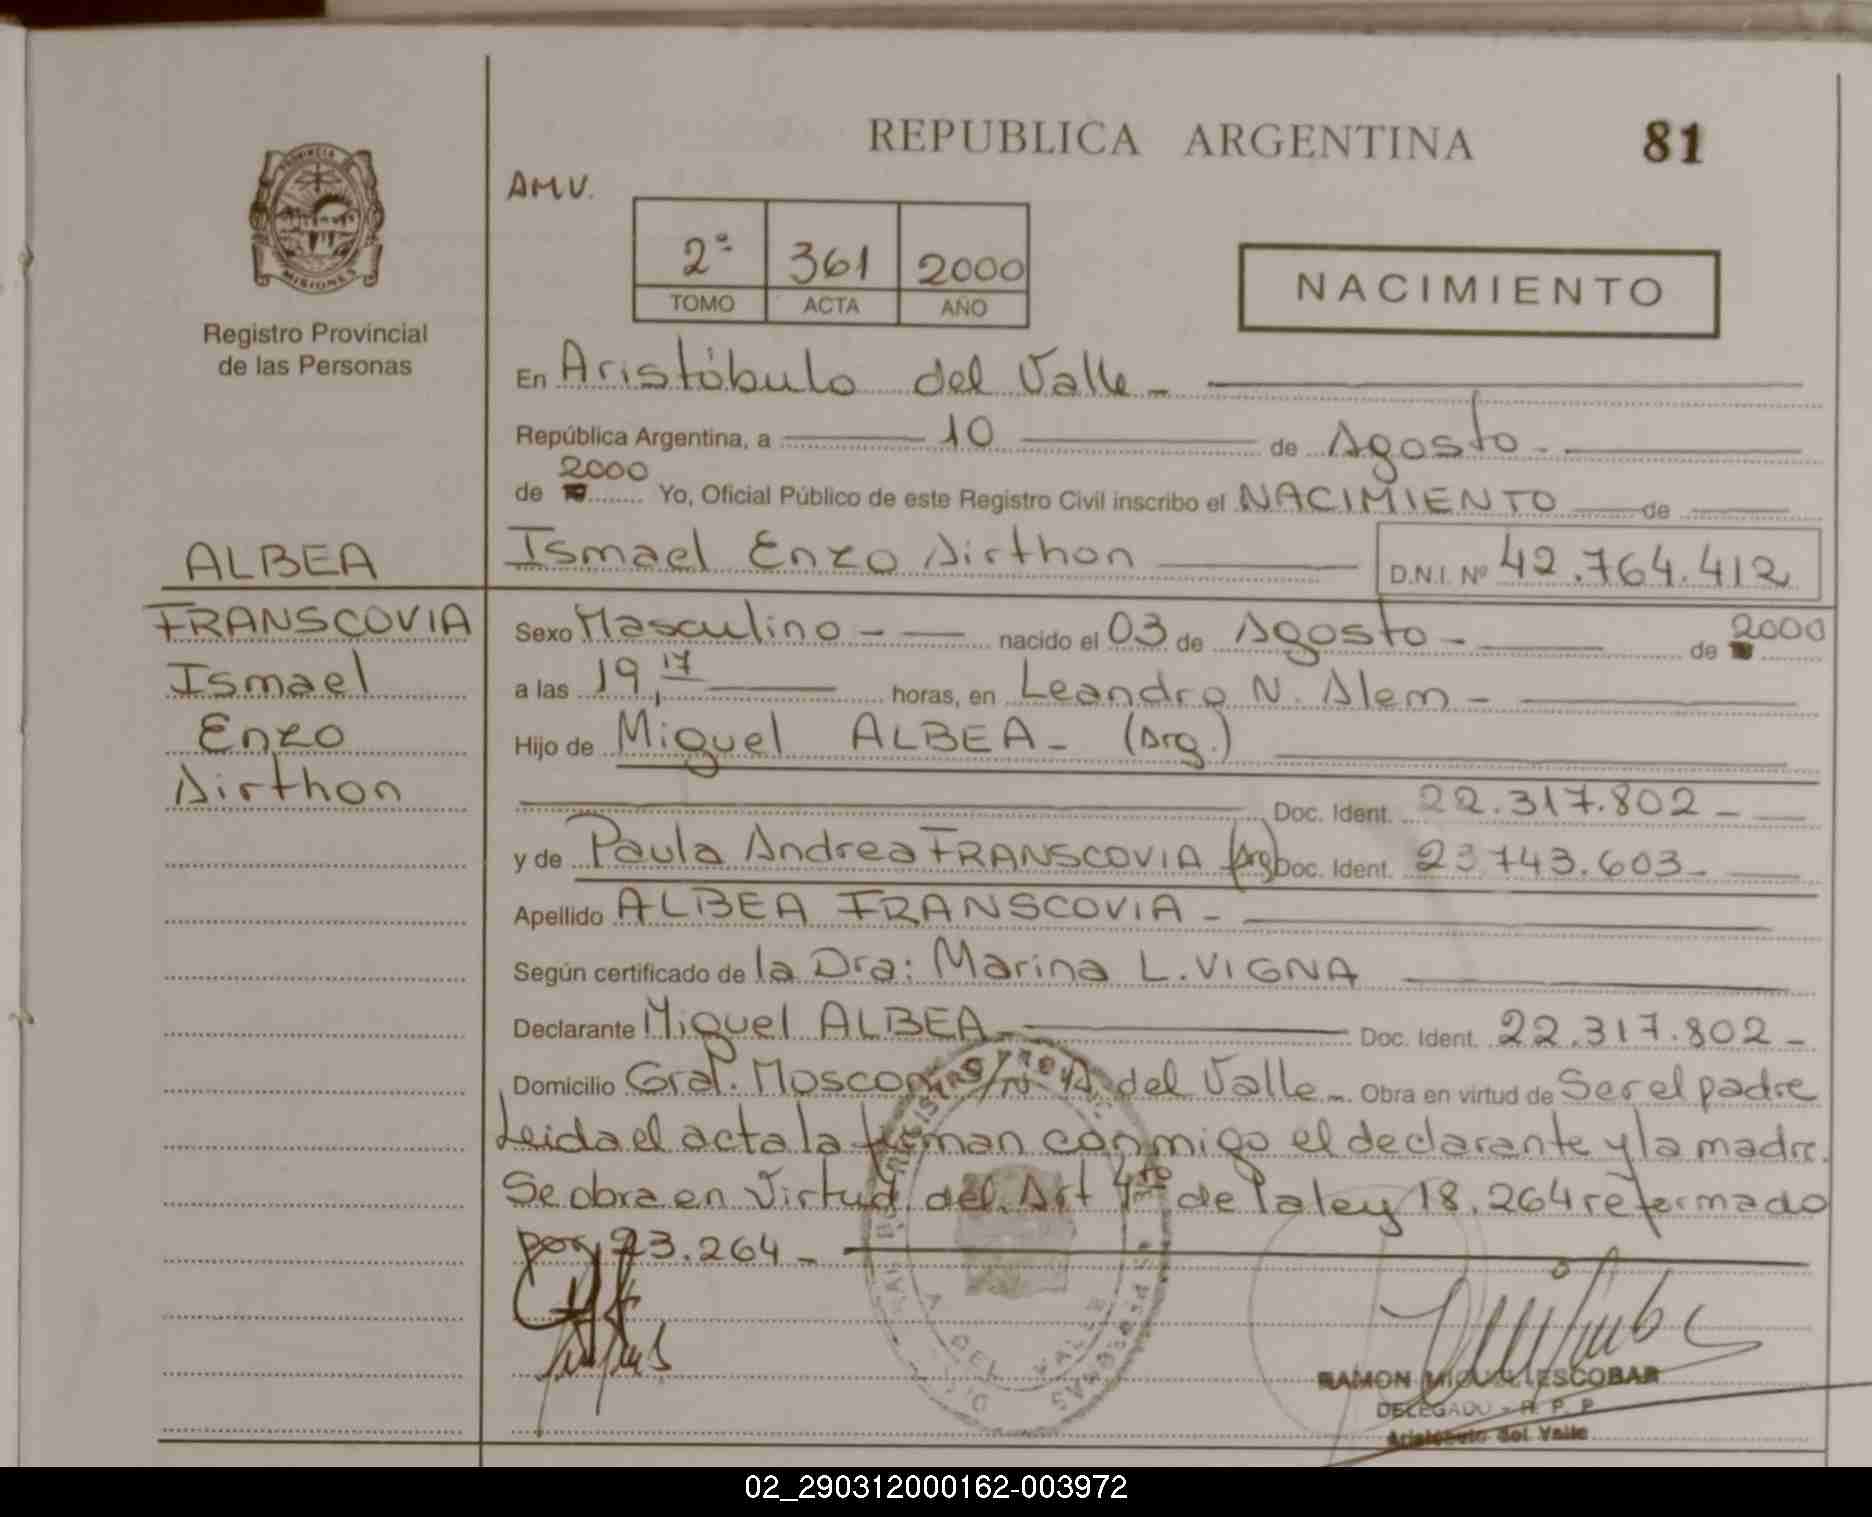 REPUBLICA ARGENTINA
81
PROVINCIA
MISIONES
Registro Provincial
de las Personas
AMV.
2ª 361 2000
TOMO ACTA AÑO
NACIMIENTO
En Aristóbulo del Valle -
República Argentina, a 10 de Agosto -
de 2000 Yo, Oficial Público de este Registro Civil inscribo el NACIMIENTO de
Ismael Enzo Airthon D.N.I. Nº 42.764.412
ALBEA
FRANSCOVIA
Ismael
Enzo
Airthon
Sexo Masculino - nacido el 03 de Agosto - de 2000
a las 19,17 horas, en Leandro N. Alem -
Hijo de Miguel ALBEA - (Arg.)
Doc. Ident. 22.317.802 -
y de Paula Andrea FRANSCOVIA (Arg) Doc. Ident. 23.743.603 -
Apellido ALBEA FRANSCOVIA -
Según certificado de la Dra: Marina L. VIGNA
Declarante Miguel ALBEA - Doc. Ident. 22.317.802 -
Domicilio Gral. Mosconi S/Nº A. del Valle - Obra en virtud de Ser el padre
Leida el acta la firman conmigo el declarante y la madre.
Se obra en Virtud del Art 4to de la ley 18.264 reformado
por 23.264 -
A. DEL VALLE
PERSONAS
RAMON MIGUEL ESCOBAR
DELEGADO - R. P. P
Aristobulo del Valle
02_290312000162-003972